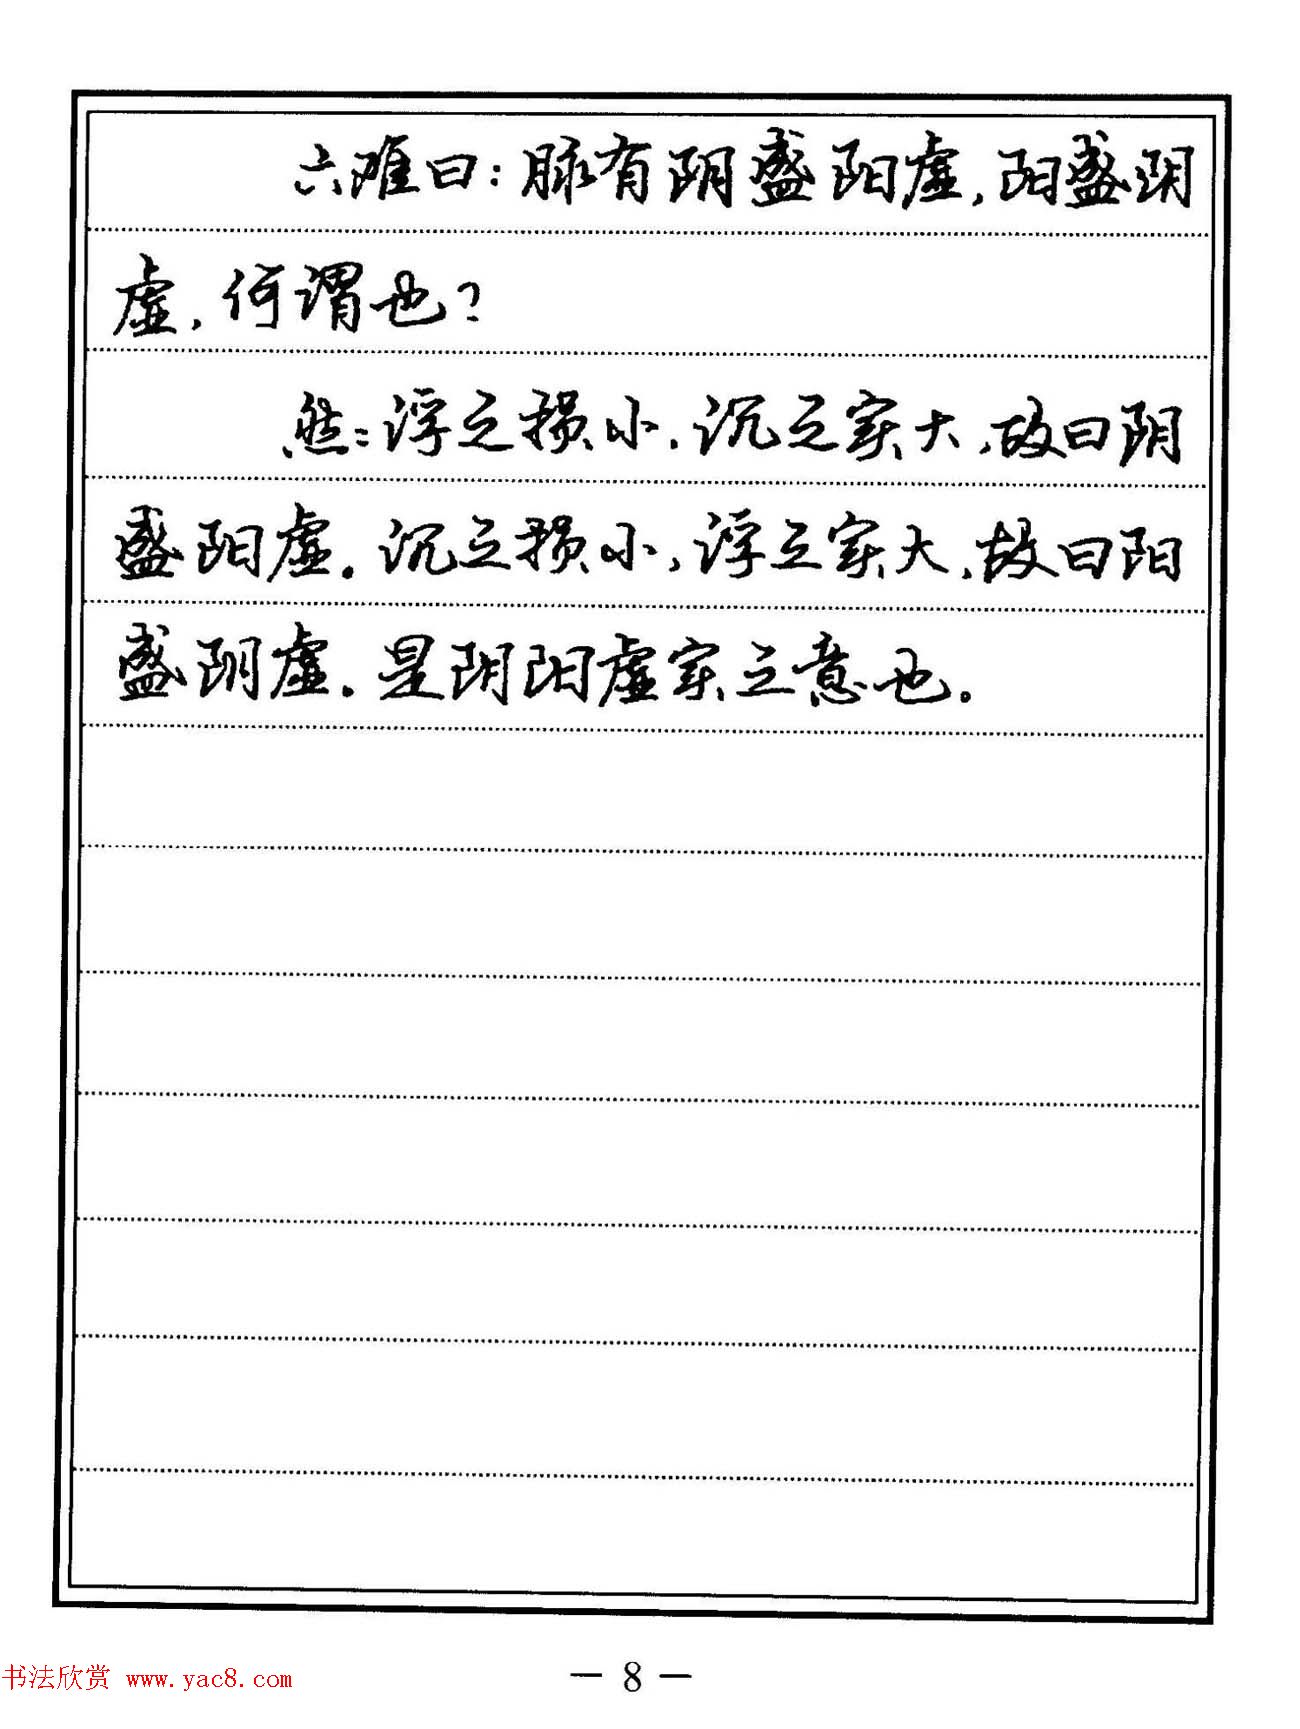 六难曰：脉有阴盛阳虚，阳盛阴
虚，何谓也？
然：浮之损小，沉之实大，故曰阴
盛阳虚。沉之损小，浮之实大，故曰阳
盛阴虚。是阴阳虚实之意也。
书法欣赏 www.yac8.com
— 8 —